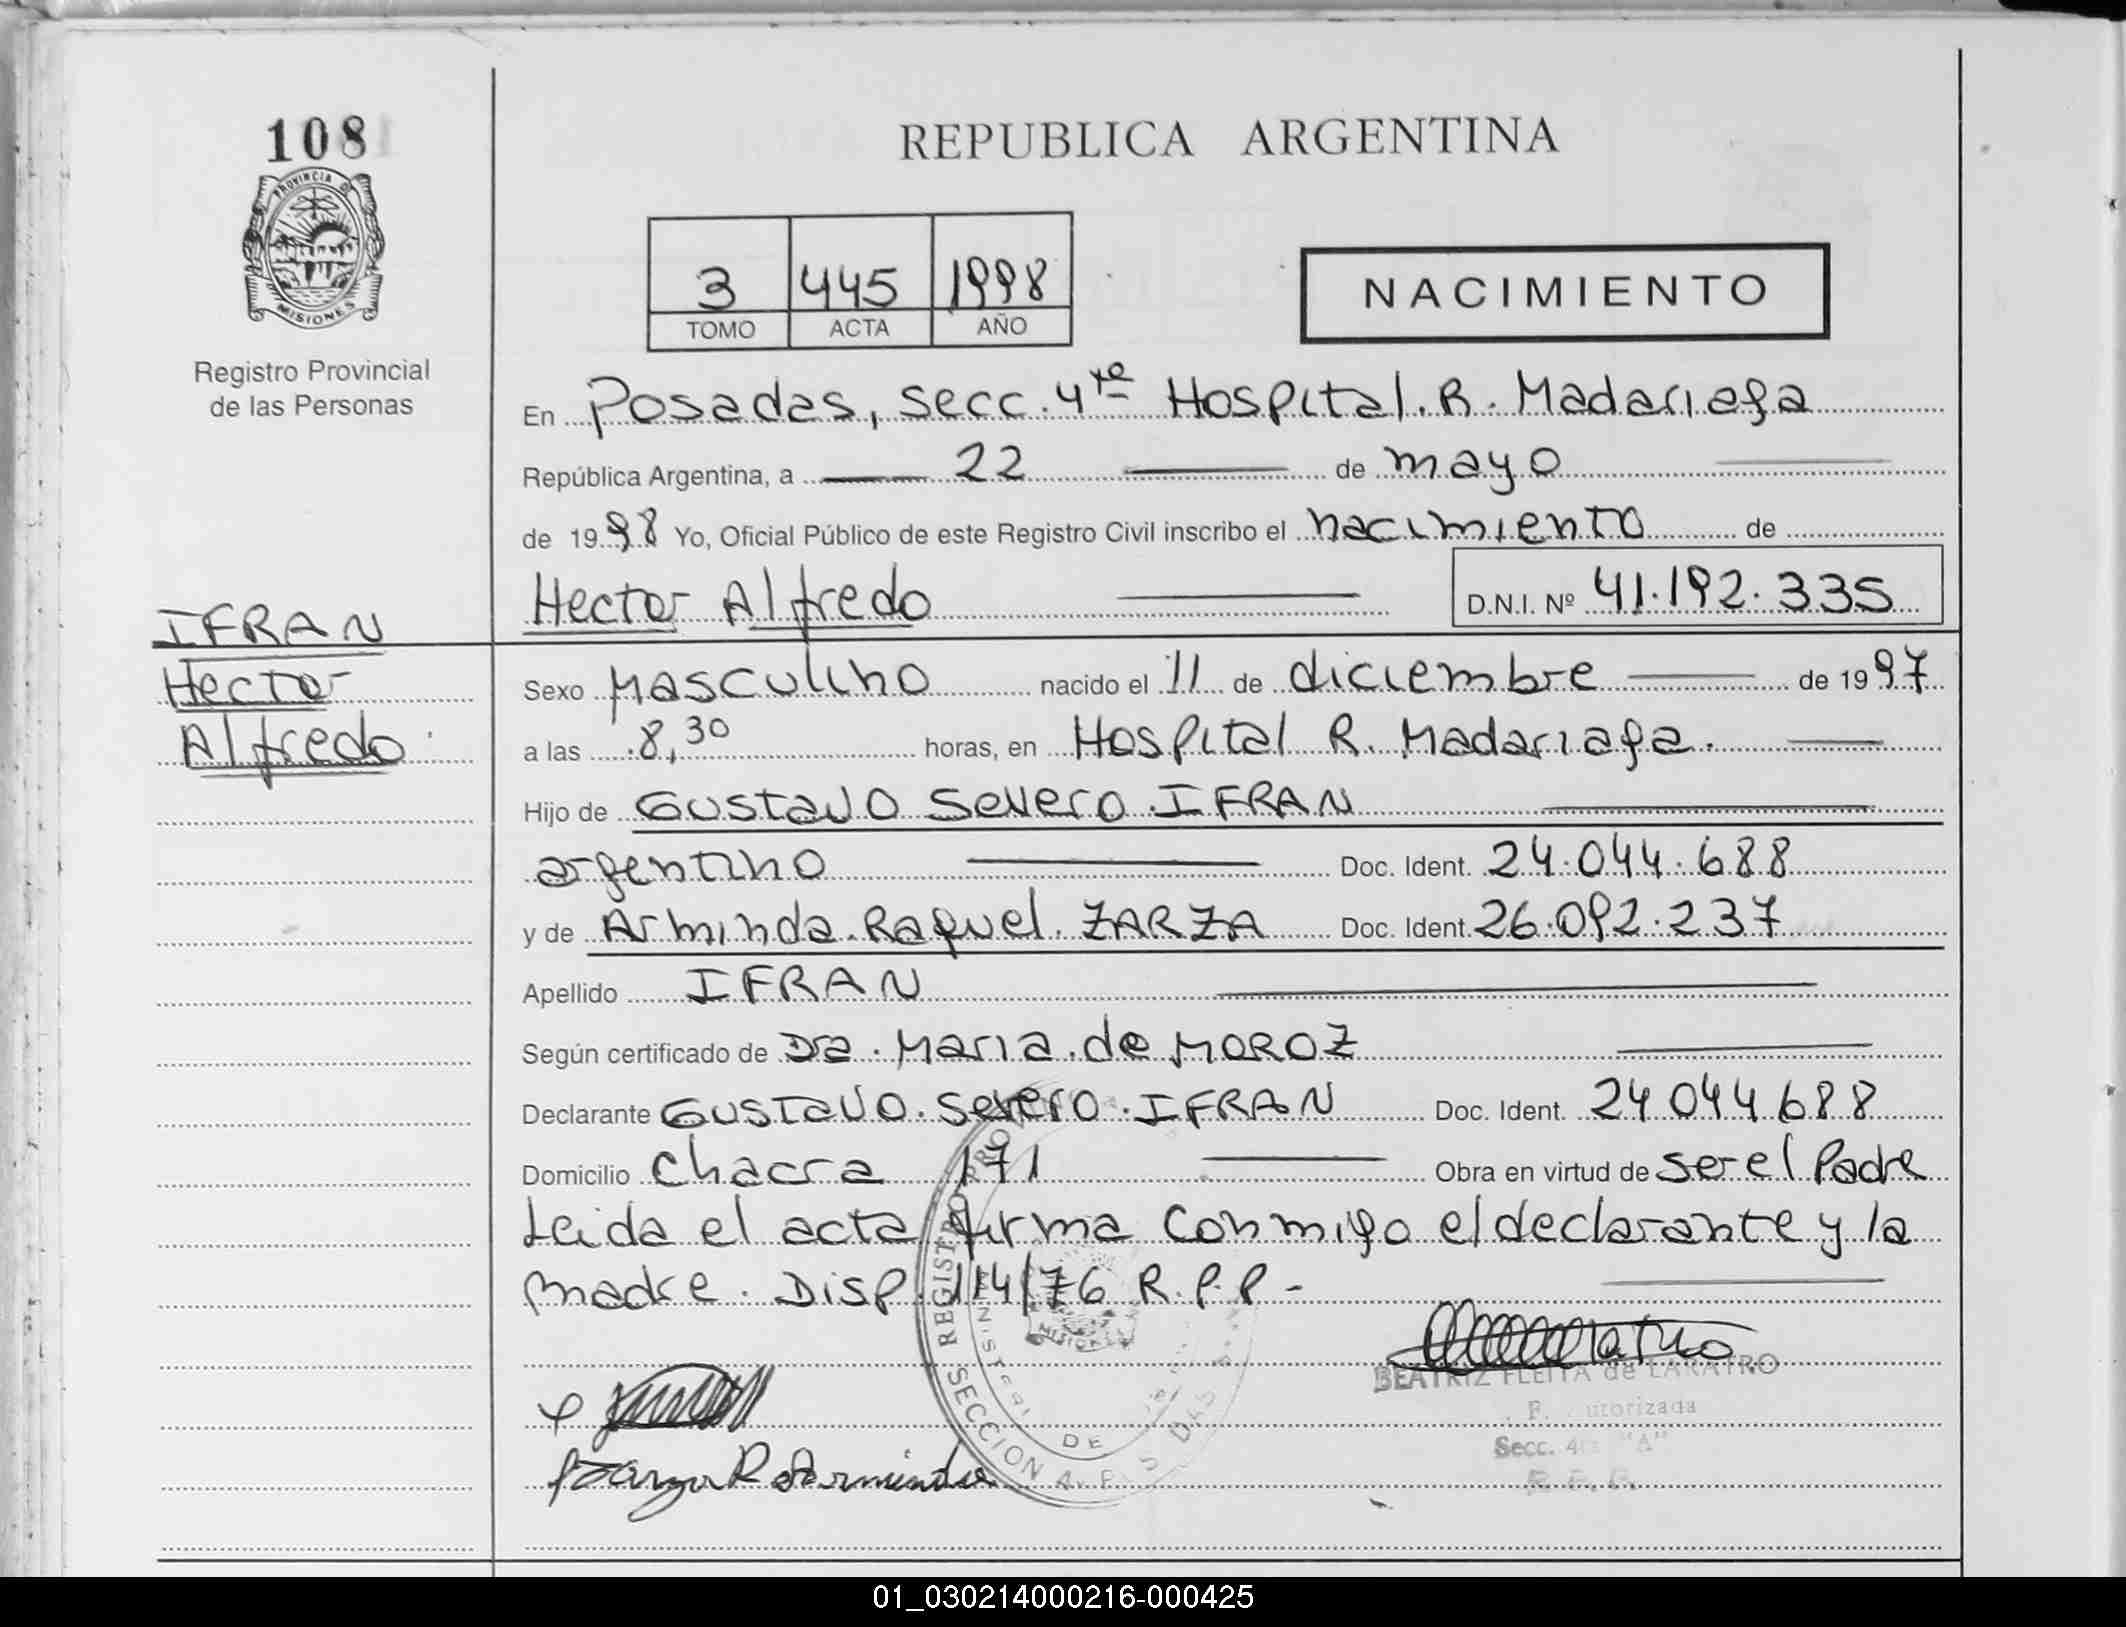 108
PROVINCIA DE
MISIONES
Registro Provincial
de las Personas
IFRAN
Hector
Alfredo
REPUBLICA ARGENTINA
3 445 1998
TOMO ACTA AÑO
NACIMIENTO
En Posadas, secc. 4ta Hospital R. Madariaga
República Argentina, a 22 de mayo
de 1998 Yo, Oficial Público de este Registro Civil inscribo el nacimiento de
Hector Alfredo D.N.I. Nº 41.192.335
Sexo Masculino nacido el 11 de diciembre de 1997
a las 8,30 horas, en Hospital R. Madariaga.
Hijo de Gustavo Severo IFRAN
argentino Doc. Ident. 24.044.688
y de Arminda Raquel ZARZA Doc. Ident. 26.092.237
Apellido IFRAN
Según certificado de Dra. Maria de MOROZ
Declarante Gustavo Severo IFRAN Doc. Ident. 24.044.688
Domicilio Chacra 171 Obra en virtud de ser el Padre
Leida el acta firma conmigo el declarante y la
madre. Disp. 114/76 R.P.P-
BEATRIZ FLEITA de LARATRO
Secc. 4 "A"
REGISTRO
SECCION
MISIONES
DE
01_030214000216-000425